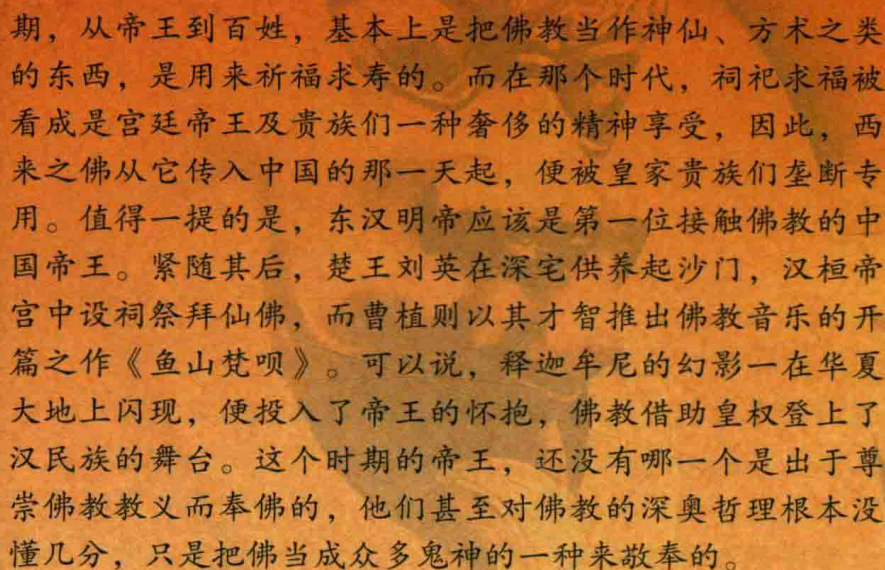 期，从帝王到百姓，基本上是把佛教当作神仙、方术之类
的东西，是用来祈福求寿的。而在那个时代，祠祀求福被
看成是宫廷帝王及贵族们一种奢侈的精神享受，因此，西
来之佛从它传入中国的那一天起，便被皇家贵族们垄断专
用。值得一提的是，东汉明帝应该是第一位接触佛教的中
国帝王。紧随其后，楚王刘英在深宅供养起沙门，汉桓帝
宫中设祠祭拜仙佛，而曹植则以其才智推出佛教音乐的开
篇之作《鱼山梵呗》。可以说，释迦牟尼的幻影一在华夏
大地上闪现，便投入了帝王的怀抱，佛教借助皇权登上了
汉民族的舞台。这个时期的帝王，还没有哪一个是出于尊
崇佛教教义而奉佛的，他们甚至对佛教的深奥哲理根本没
懂几分，只是把佛当成众多鬼神的一种来敬奉的。